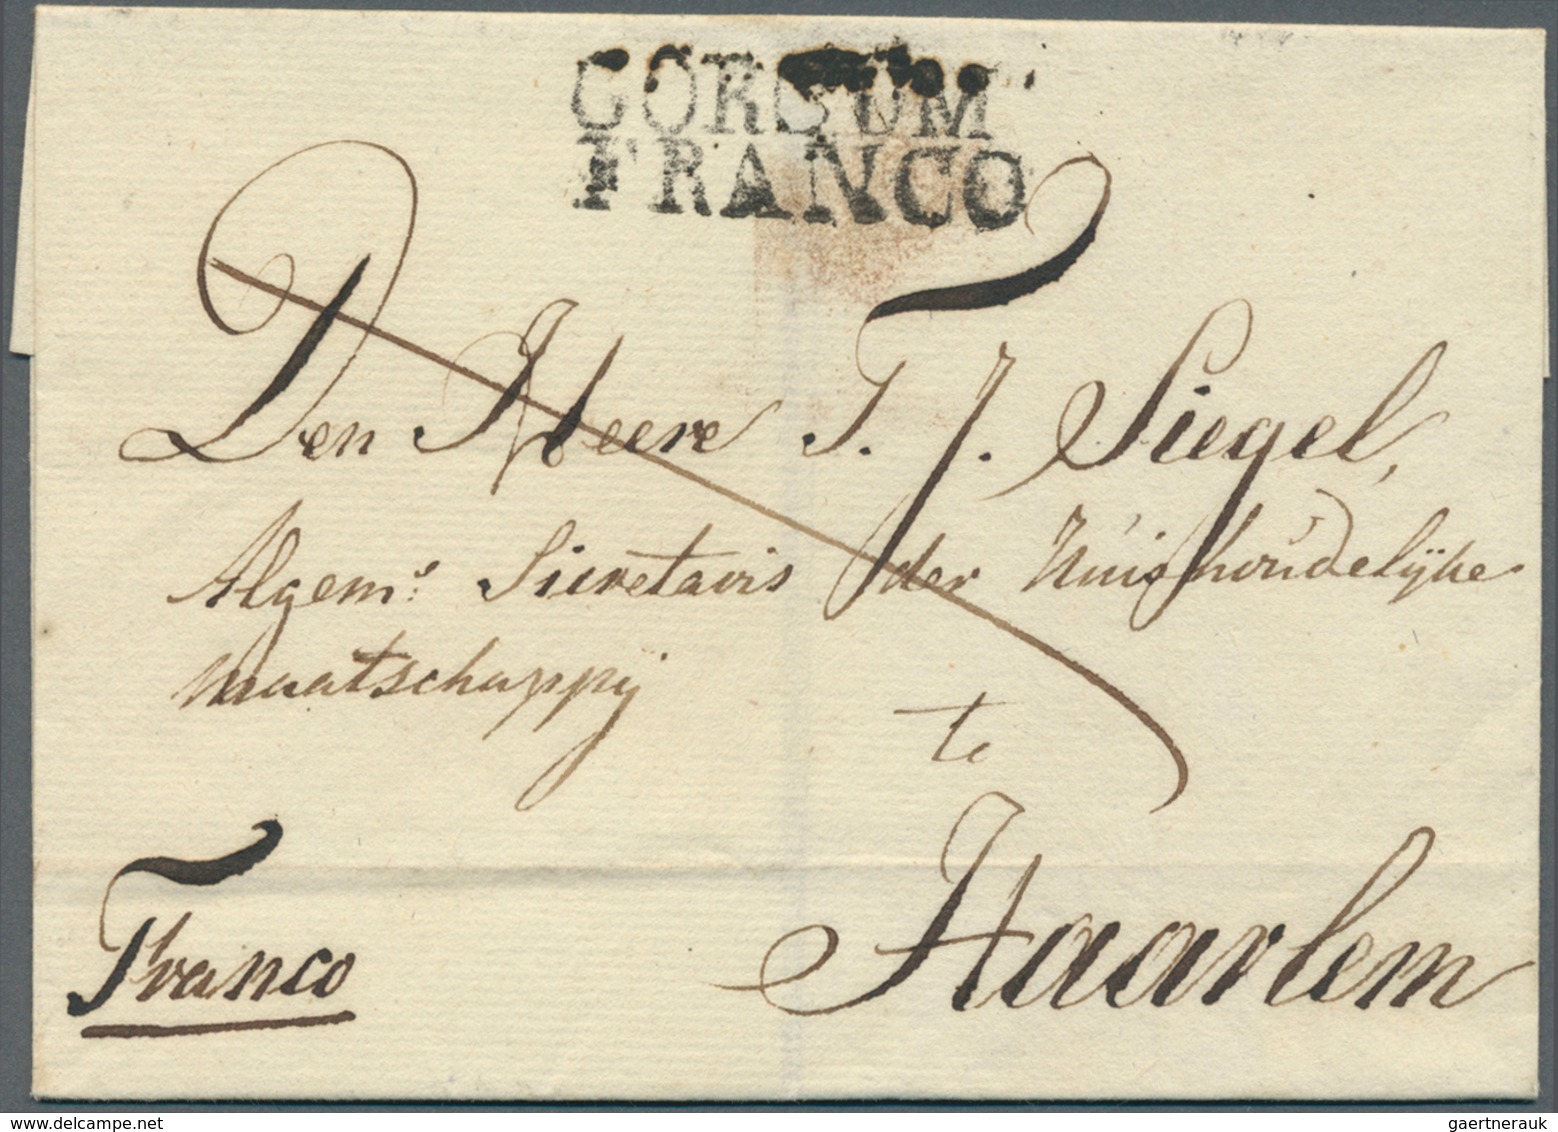 GORCUM
FRANCO
Den Heere T. J. Siegel,
Algem: Sicretaris der Huishoudelijke
maatschappij
te
Haarlem
Franco
www.delcampe.net
gaertnerauk